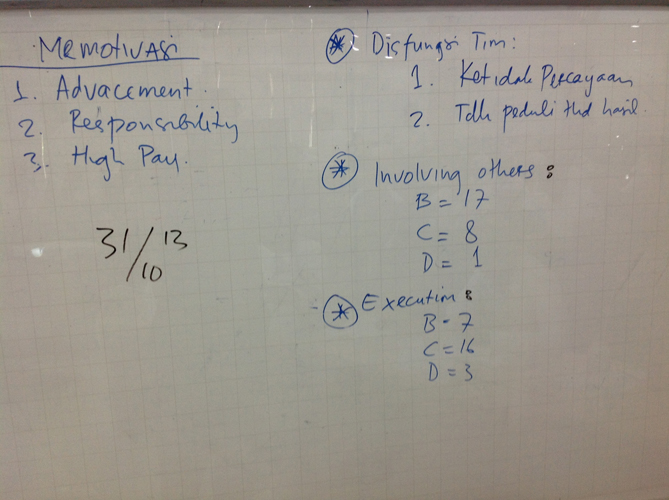 Memotivasi
1. Advacement.
2. Responsibility
3. High Pay.
31/13
/10
* Disfungsi Tim:
1. Ketidak Percayaan
2. Tdk peduli thd hasil.
* Involving others :
B = 17
C = 8
D = 1
- * Execution :
B - 7
C = 16
D = 3